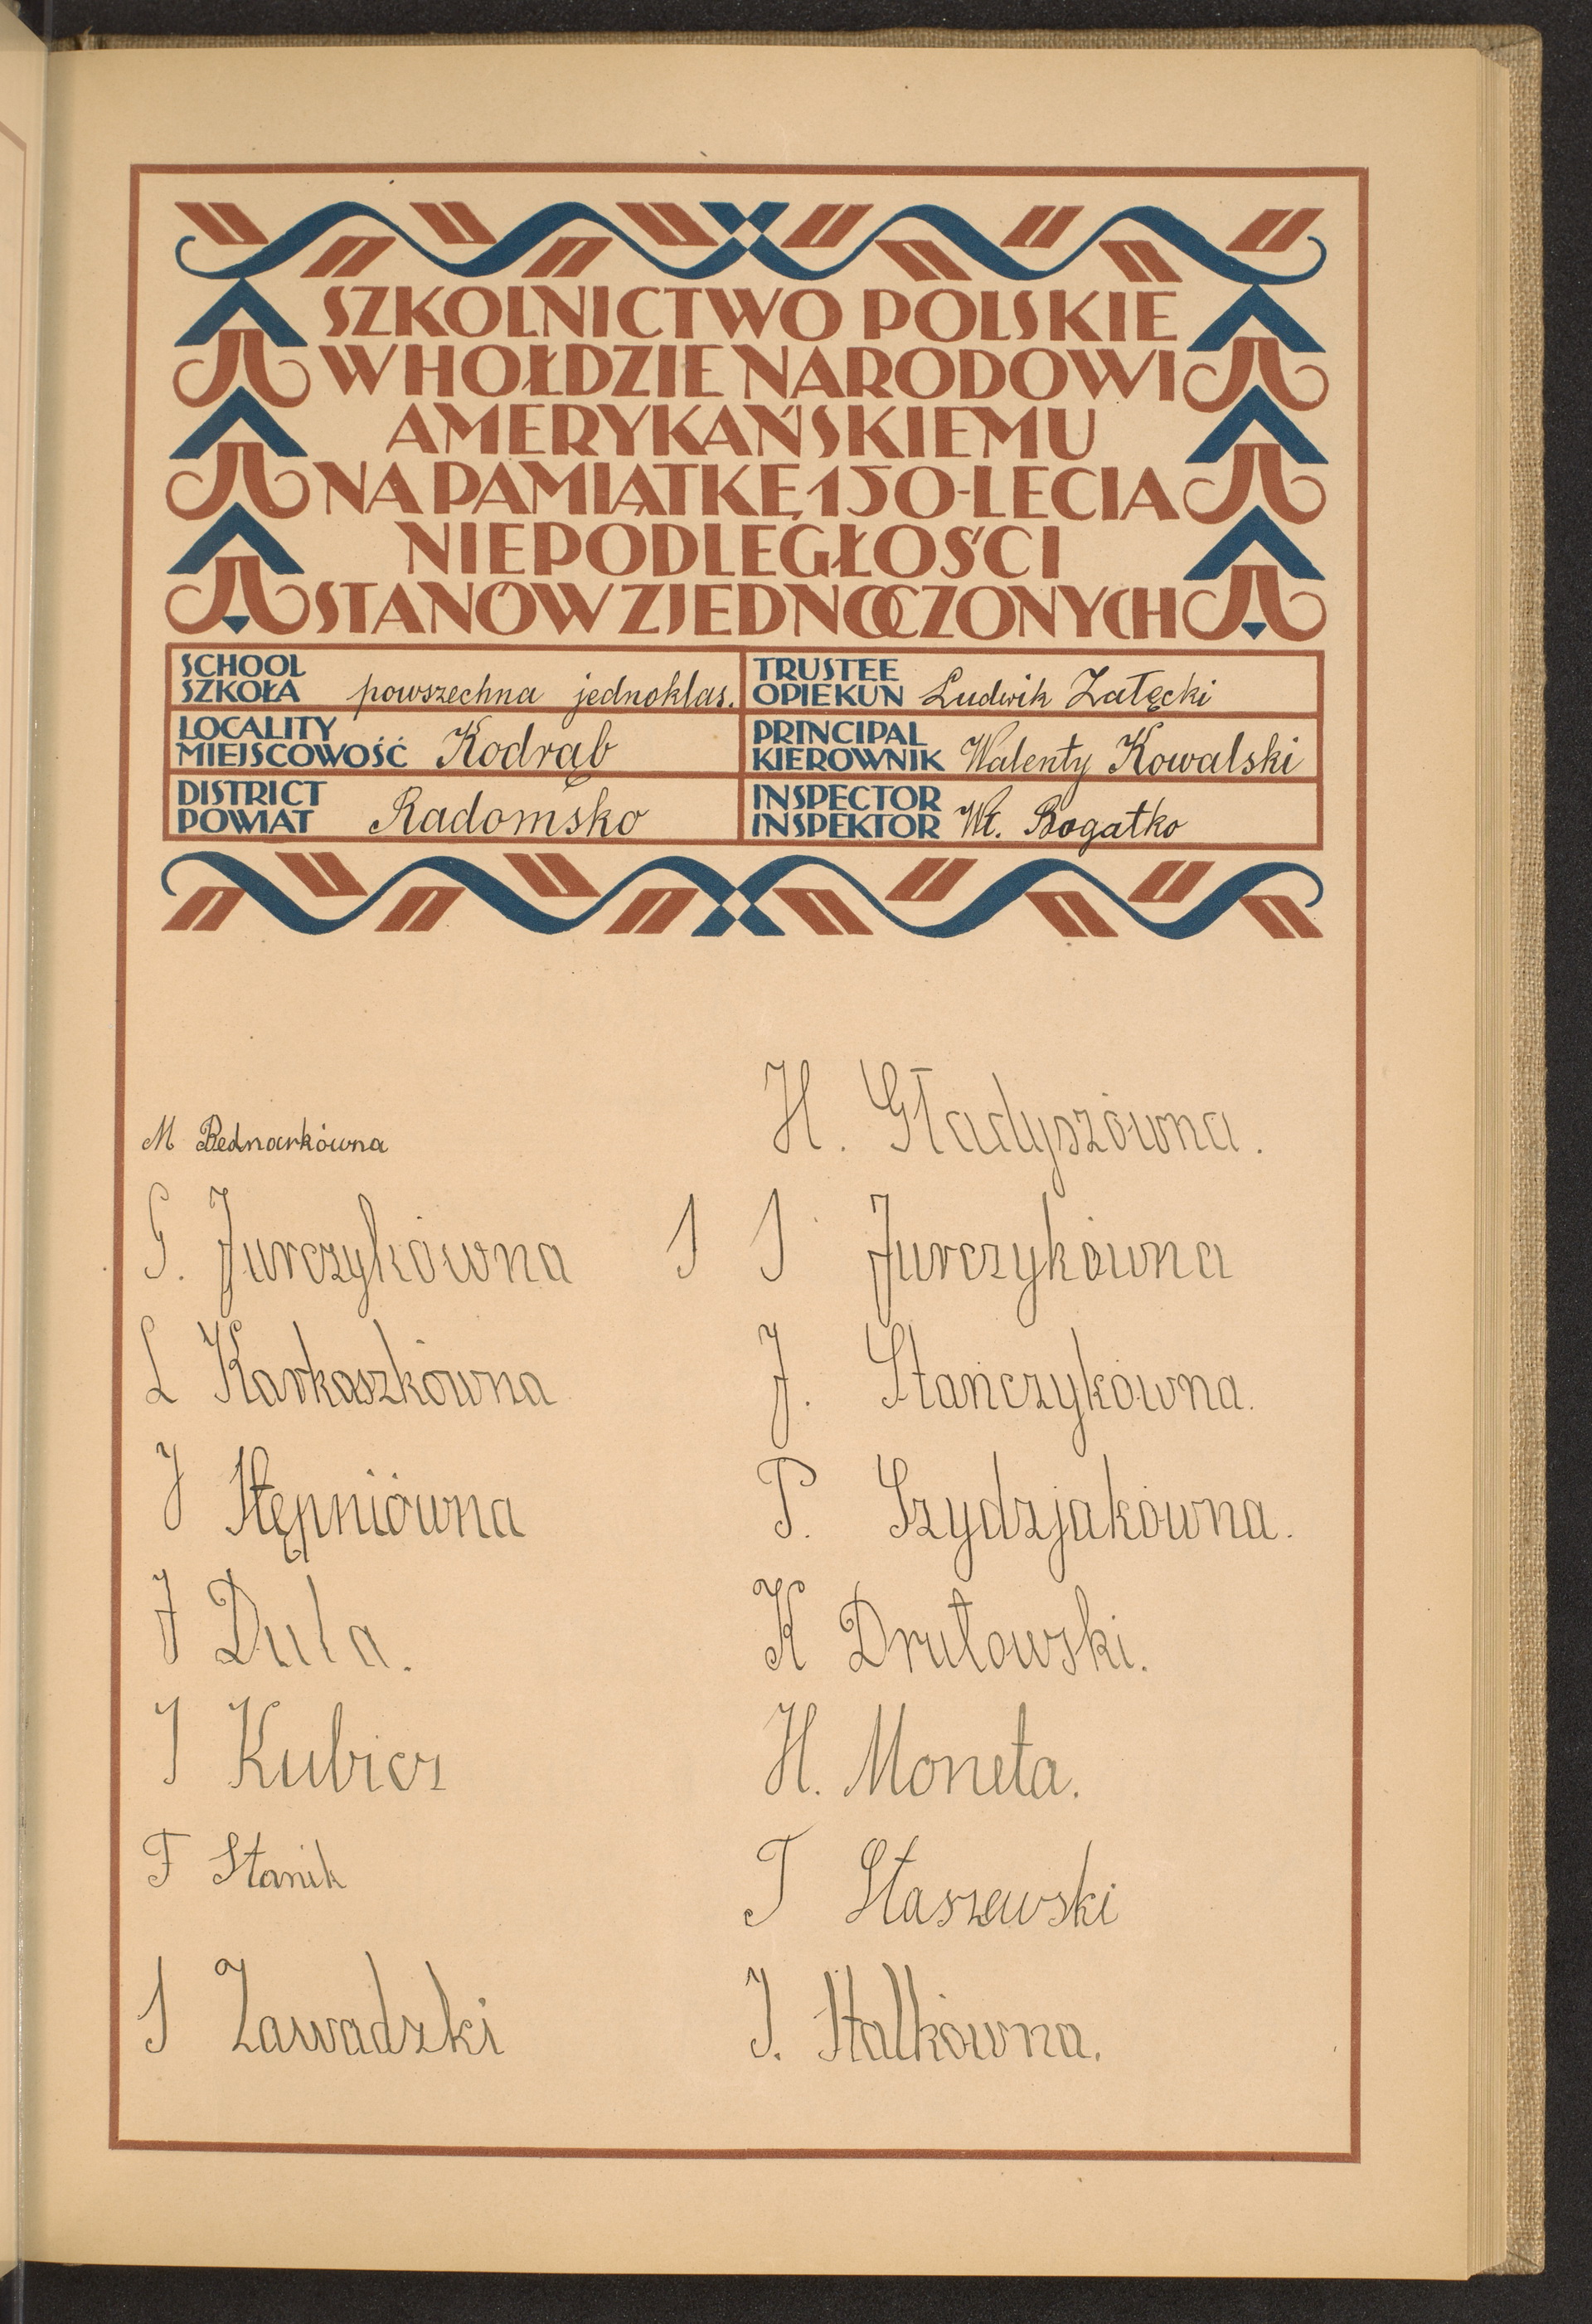 SZKOLNICTWO POLSKIE
W HOŁDZIE NARODOWI
AMERYKAŃSKIEMU
NA PAMIĄTKĘ 150-LECIA
NIEPODLEGŁOŚCI
STANÓW ZJEDNOCZONYCH
SCHOOL
SZKOŁA powszechna jednoklas.
TRUSTEE
OPIEKUN Ludwik Załęcki
LOCALITY
MIEJSCOWOŚĆ Kodrąb
PRINCIPAL
KIEROWNIK Walenty Kowalski
DISTRICT
POWIAT Radomsko
INSPECTOR
INSPEKTOR Wł. Bogatko
M Bednarkówna
H. Gładyszówna.
G. Jurczykówna
S S Jurczykówna
L Karkoszkówna
J. Stańczykówna.
J Stępniówna
P. Szydzjakówna.
J Dula.
K Drutowski.
J Kubicz
H. Moneta.
F Stanik
T Staszewski
S Zawadzki
J. Stalkówna.